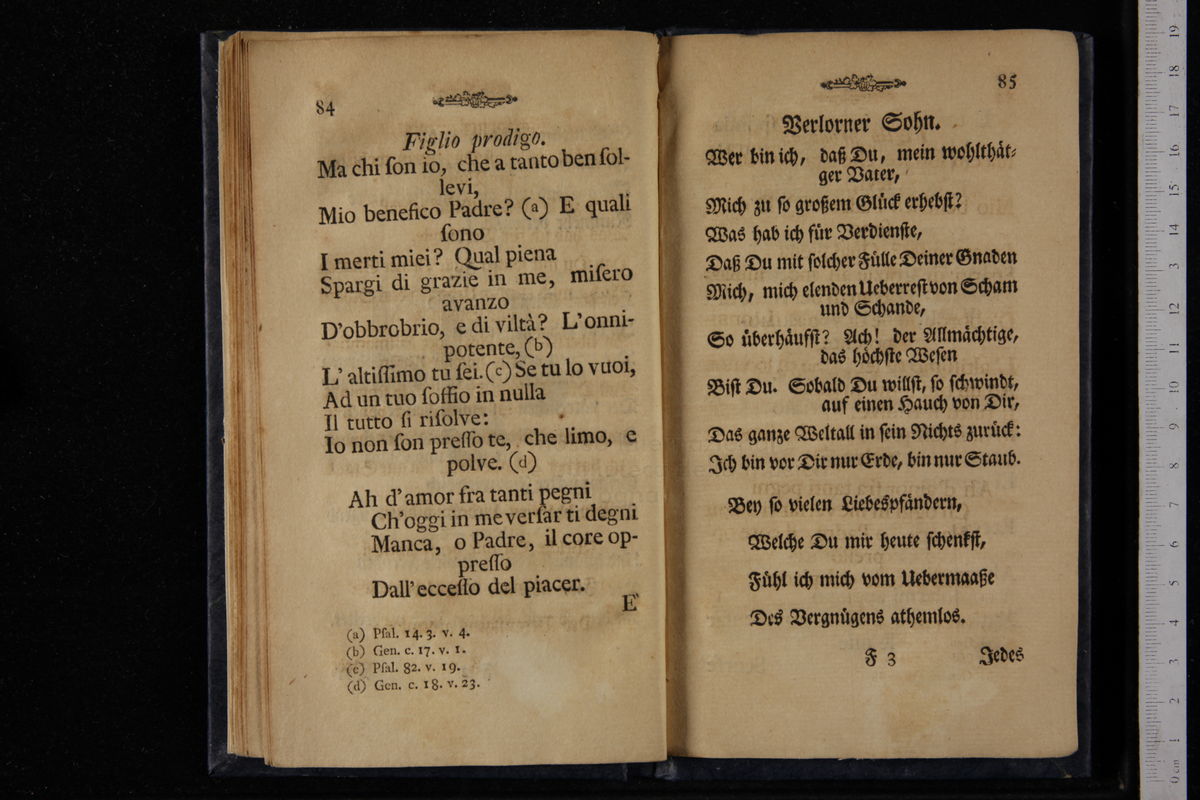 84
Figlio prodigo.
Ma chi ſon io, che a tanto ben ſol-
levi,
Mio benefico Padre? (a) E quali
ſono
I merti miei? Qual piena
Spargi di grazie in me, miſero
avanzo
D'obbrobrio, e di viltà? L'onni-
potente, (b)
L' altiſſimo tu ſei. (c) Se tu lo vuoi,
Ad un tuo ſoffio in nulla
Il tutto ſi riſolve:
Io non ſon preſſo te, che limo, e
polve. (d)
Ah d'amor fra tanti pegni
Ch'oggi in me verſar ti degni
Manca, o Padre, il core op-
preſſo
Dall' ecceſſo del piacer.
E'
(a) Pſal. 14. 3. v. 4.
(b) Gen. c. 17. v. 1.
(c) Pſal. 82. v. 19.
(d) Gen. c. 18. v. 23.
85
Verlorner Sohn.
Wer bin ich, daß Du, mein wohlthät-
ger Vater,
Mich zu ſo großem Glück erhebſt?
Was hab ich für Verdienſte,
Daß Du mit ſolcher Fülle Deiner Gnaden
Mich, mich elenden Ueberreſt von Scham
und Schande,
So überhäufſt? Ach! der Allmächtige,
das höchſte Weſen
Biſt Du. Sobald Du willſt, ſo ſchwindt,
auf einen Hauch von Dir,
Das ganze Weltall in ſein Nichts zurück:
Ich bin vor Dir nur Erde, bin nur Staub.
Bey ſo vielen Liebespfändern,
Welche Du mir heute ſchenkſt,
Fühl ich mich vom Uebermaaße
Des Vergnügens athemlos.
F 3 Jedes
0 cm 1 2 3 4 5 6 7 8 9 10 11 12 3 14 15 16 17 18 19